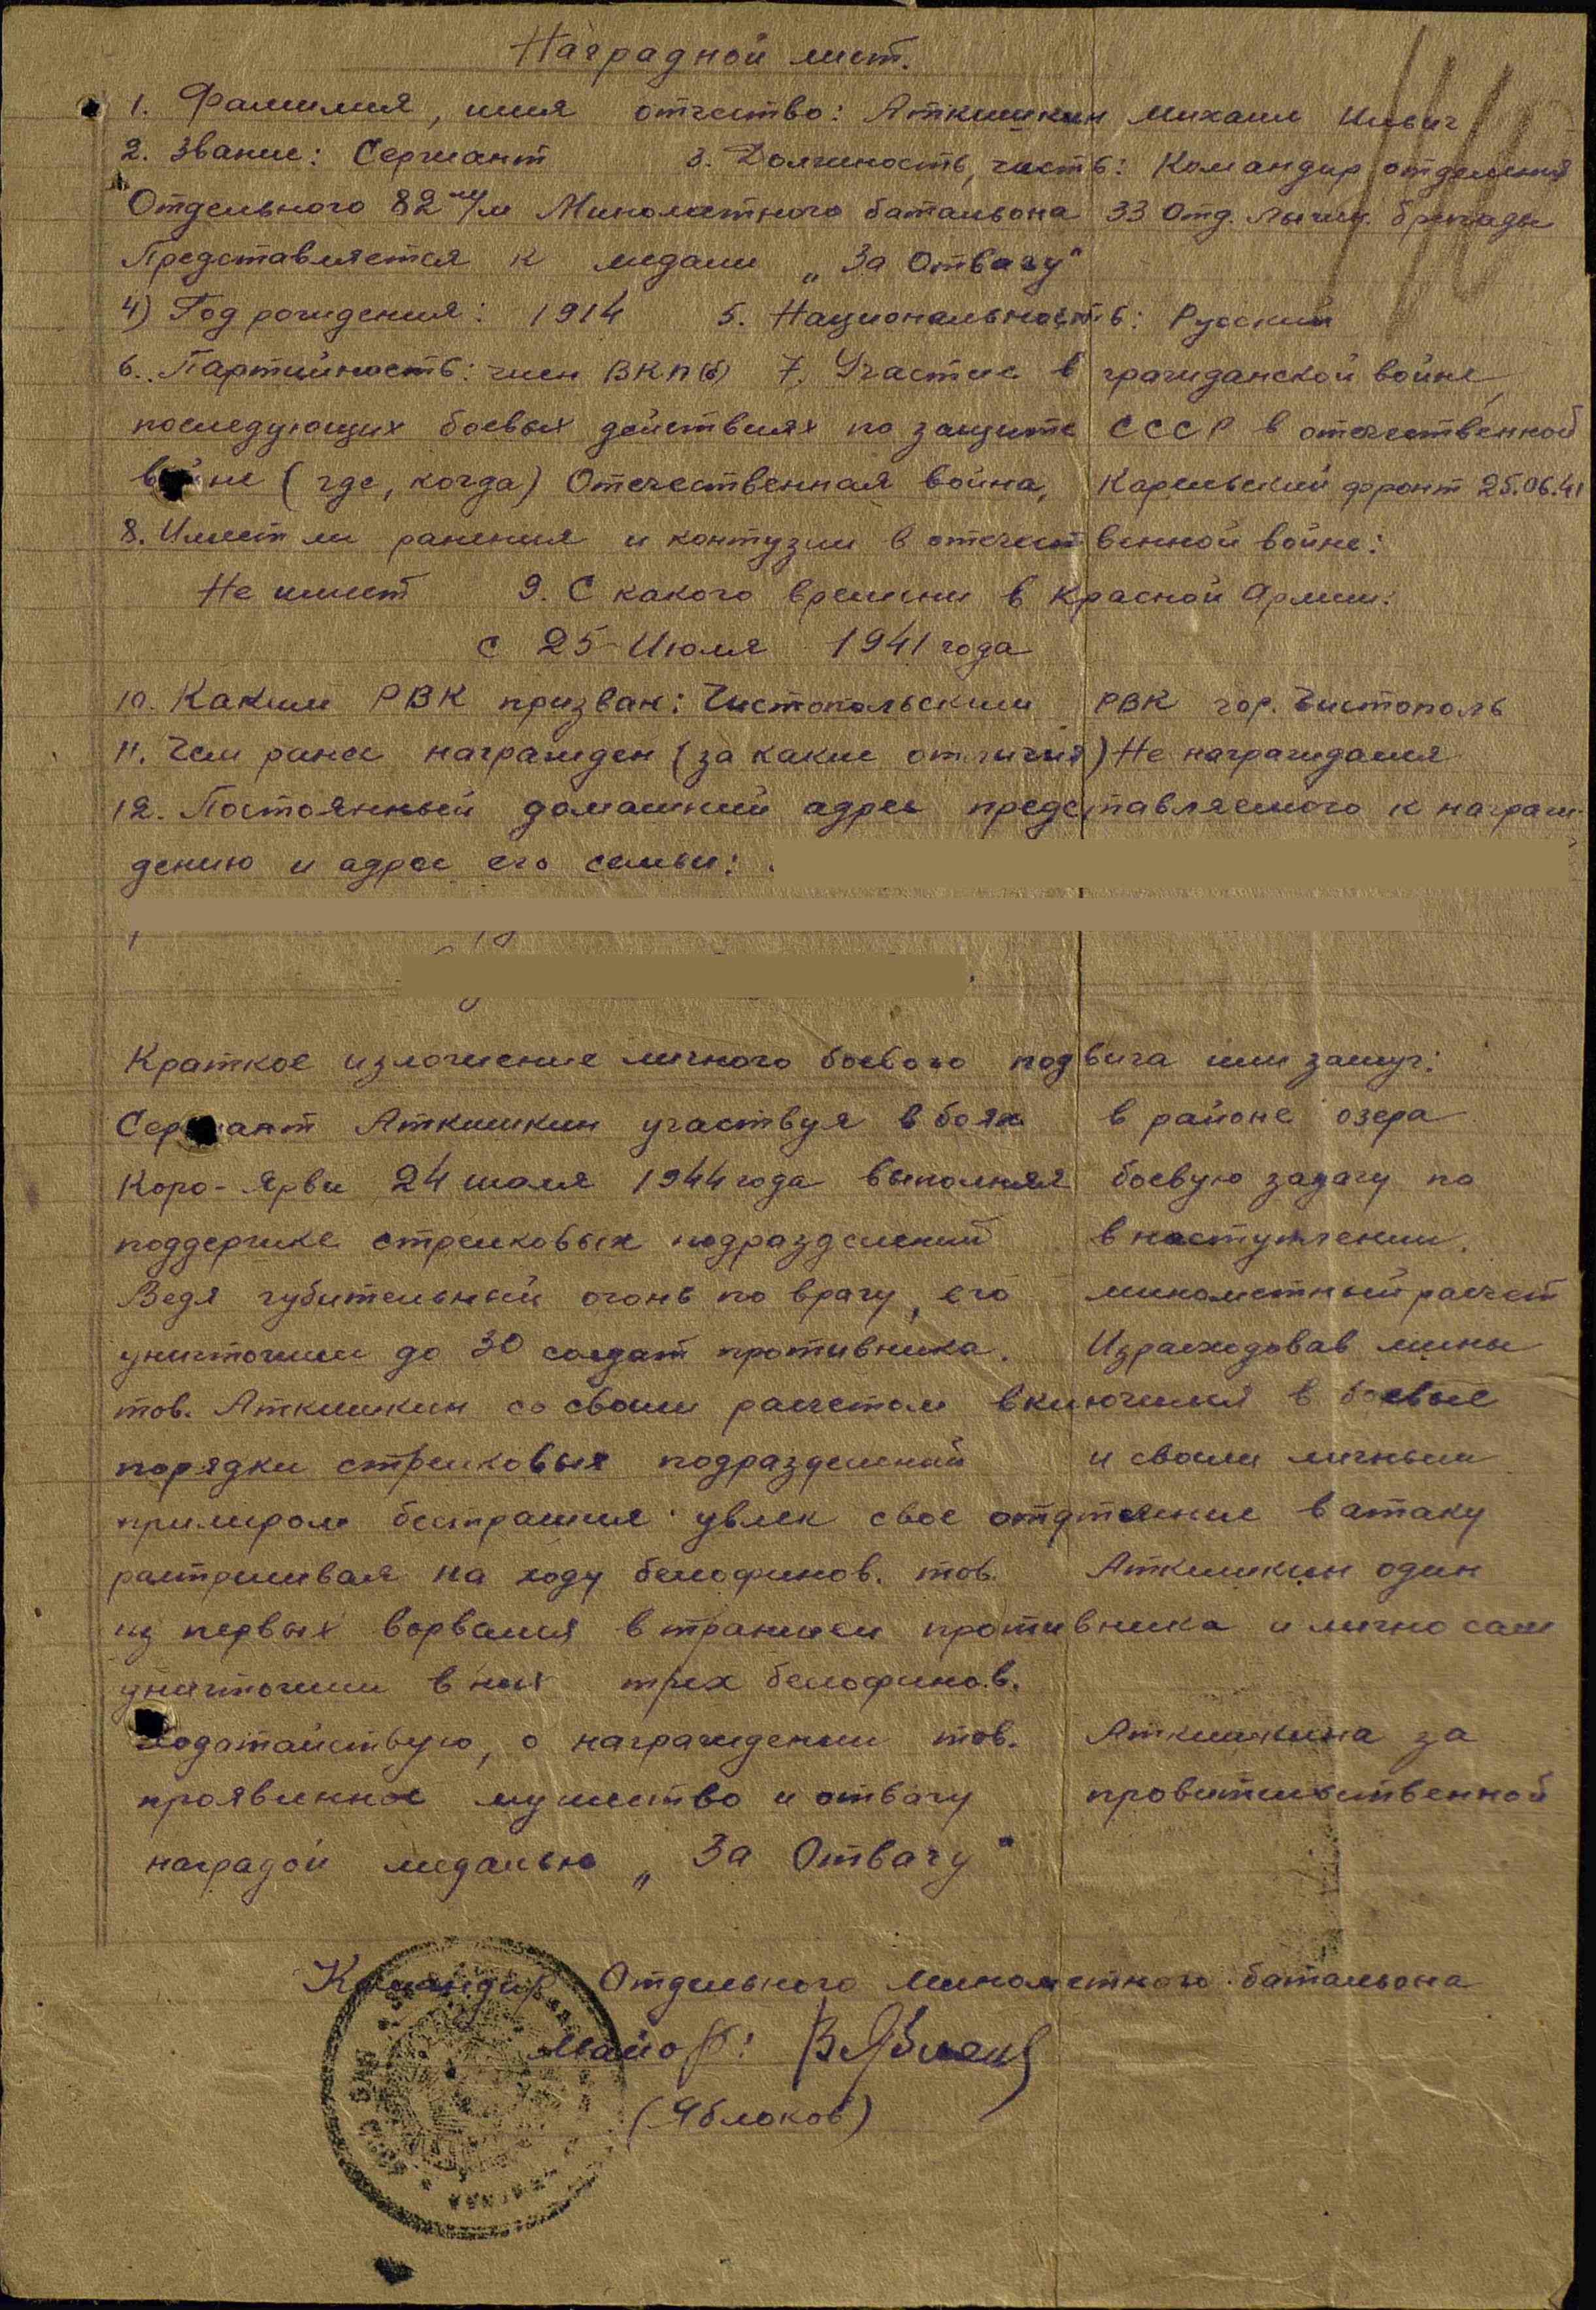 Наградной лист.
1. Фамилия, имя отчество: Аткишкин Михаил Ильич
2. Звание: Сержант 3. Должность, часть: Командир отделения
Отдельного 82 м/м Минометного батальона 33 Отд. Лыжн. бригады
Представляется к медали „За Отвагу"
4) Год рождения: 1914 5. Национальность: Русский
6. Партийность: член ВКП(б) 7. Участие в гражданской войне,
последующих боевых действиях по защите СССР в отечественной
войне (где, когда) Отечественная война, Карельский фронт 25.06.41
8. Имеет ли ранения и контузии в отечественной войне:
Не имеет 9. С какого времени в Красной Армии:
с 25 Июля 1941 года
10. Каким РВК призван: Чистопольским РВК гор. Чистополь
11. Чем ранее награжден (за какие отличия) Не награждался
12. Постоянный домашний адрес представляемого к награж-
дению и адрес его семьи:
Краткое изложение личного боевого подвига или заслуг:
Сержант Аткишкин участвуя в боях в районе озера
Коро-Ярви 24 июля 1944 года выполнял боевую задачу по
поддержке стрелковых подразделений в наступлении.
Ведя губительный огонь по врагу, его минометный расчет
уничтожил до 30 солдат противника. Израсходовав мины
тов. Аткишкин со своим расчетом включился в боевые
порядки стрелковых подразделений и своим личным
примером бестрашия увлек свое отделение в атаку
растреливая на ходу белофинов. тов. Аткишкин один
из первых ворвался в траншеи противника и лично сам
уничтожил в них трех белофинов.
Ходатайствую, о награждении тов. Аткишкина за
проявленное мужество и отвагу правительственной
наградой медалью „За Отвагу"
Командир Отдельного минометного батальона
майор:
(Яблоков)